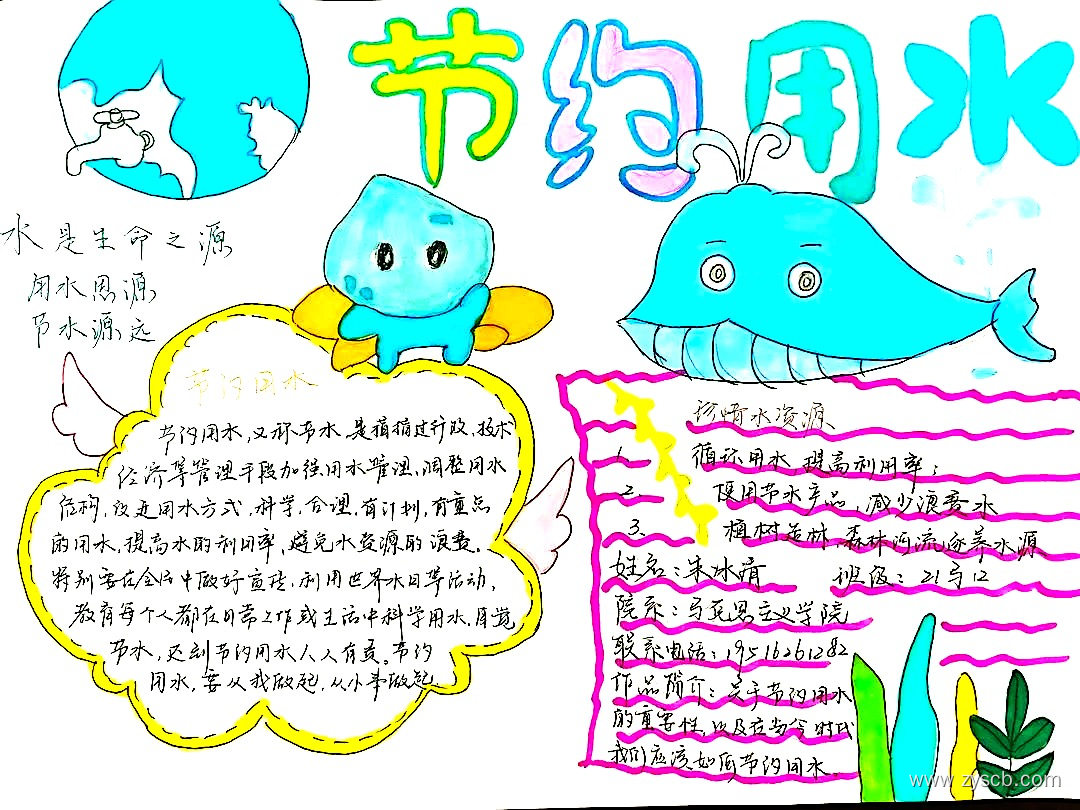 节约用水
水是生命之源
用水思源
节水源远
节约用水
节约用水,又称节水,是指通过行政,技术
经济等管理手段加强用水管理,调整用水
结构,改进用水方式,科学,合理,有计划,有重点
的用水,提高水的利用率,避免水资源的浪费。
特别要在全社中做好宣传,利用世界水日等活动,
教育每个人都在日常工作或生活中科学用水,自觉
节水,达到节约用水人人有责。节约
用水,要从我做起,从小事做起。
珍惜水资源
1. 循环用水,提高利用率;
2. 使用节水产品,减少浪费水
3. 植树造林,森林河流逐养水源
姓名:朱冰清 班级:21马12
院系:马克思主义学院
联系电话:19516261282
作品简介:关于节约用水
的重要性,以及在当今时代
我们应该如何节约用水
www.zyscb.com